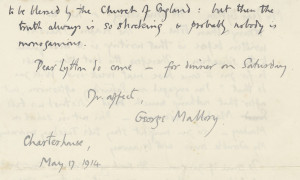 to be blessed by the Church of England : but then the
truth always is so shocking & probably nobody is
monogamous.
Dear Lytton do come – for dinner on Saturday
Yr affect,
George Mallory.
Charterhouse,
May 17. 1914.